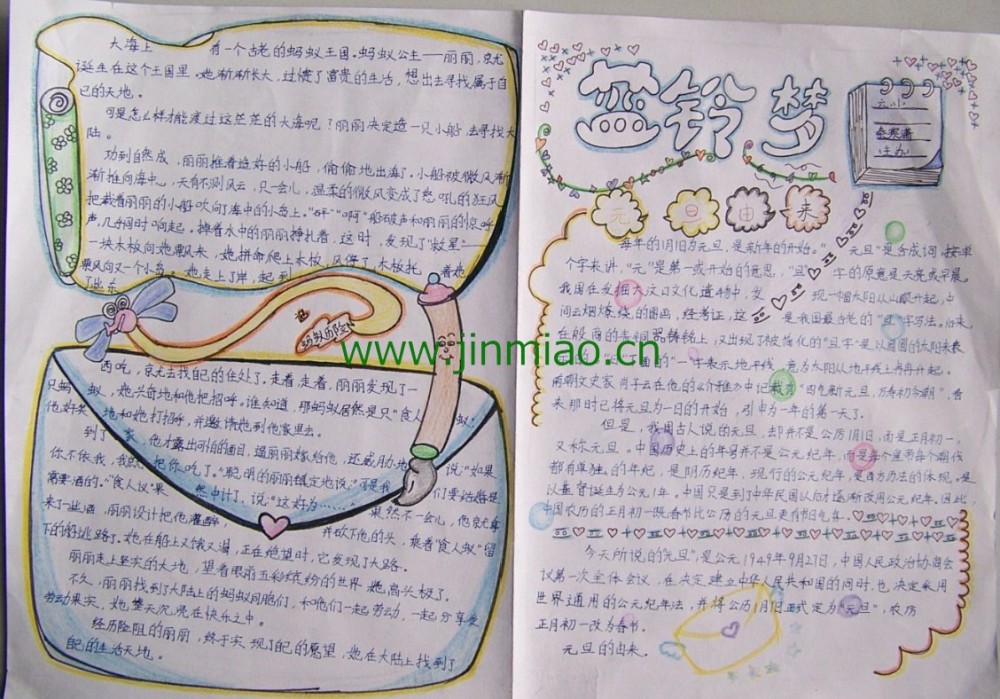 大海上 有一个古老的蚂蚁王国。蚂蚁公主——丽丽,就
诞生在这个王国里。她渐渐长大,过惯了富贵的生活,想出去寻找属于自
己的天地。
可是怎么样才能渡过这茫茫的大海呢?丽丽决定造一只小船,去寻找大
陆。
功到自然成,丽丽推着造好的小船,偷偷地出海了。小船被微风渐
渐推向海中。天有不测风云,只一会儿,温柔的微风变成了怒吼的狂风
把载着丽丽的小船吹向了海中的小岛上。"砰""啊"船破声和丽丽的惊呼
声,几乎同时响起。掉着水中的丽丽挣扎着,这时,发现了"救星"——
一块木板向她飘来,她拼命爬上木板,风停了,木板托 着她
乘风向又一个小岛。她走上了岸,起到
了出东
蚂蚁历险
西吃,就先去找自己的住处了。走着,走着,丽丽发现了一
只蚂 蚁,她兴奋地和他把招呼。谁知道,那蚂蚁居然是只"食人 蚁!
他好笑 地和她打招呼,并邀请她到他家里去。
到了 家,他才露出可怕的面目,逼丽丽嫁给他,还威胁地 说:"如果
你不依我,我就 把你吃了。"聪明的丽丽镇定地说:"可是我 们要结婚是
需要酒的。"食人蚁"果 然中计了,说:"这好办……" 果然不一会儿,他就拿
来了些酒,丽丽设计把他灌醉, 并砍下他的头,乘着"食人蚁"留
下的船逃路了。她在船上又饿又渴,正在绝望时,它发现了大路。
丽丽走上坚实的大地,望着眼前五彩缤纷的世界,她高头极了。
不久,丽丽找到了大陆上的蚂蚁同胞们,和他们一起劳动,一起分享受
劳动果实,她整天沉浸在快乐之中。
经历险阻的丽丽,终于实现了自己的愿望,她在大陆上找到了
自己的生活天地。
www.jinmiao.cn
蓝铃梦
云小
主办
元旦由来
每年的1月1日为元旦,是新年的开始。"元旦"是合成词,按单
个字来讲,"元"是第一或开始的意思,"旦" 字的原意是天亮或早晨。
我国在发掘大汶口文化遗物中,发 现一幅太阳从山颠升起,中
间云烟缭绕的图画,经考证,这 是我国最古老的"旦"字写法。后来,
在殷商的青铜器铸铭上,又出现了被简化的"旦字"是以圆圆的太阳来表
示的 "一"字表示地平线,意为太阳从地平线上冉冉升起。
南朝文史家萧子云在他的《介雅》中记载为"四气新元旦,万寿初今朝",看
来那时已将元旦为一日的开始,引申为一年的第一天了。
但是,我国古人说的元旦,却并不是公历1月1日,而是正月初一,
又称元旦。中国历史上的年号并不是公元纪年,而是每个皇帝每个朝代
都有单独的年纪,是阴历纪年,现行的公元纪年,是西方历法的体现。是
以基督诞生为公元1年。中国只是到了中华民国以后才逐渐改用公元纪年。因此,
中国农历的正月初一既春节比公历的元旦更有节日气氛。
今天所说的"元旦",是公元1949年9月27日,中国人民政治协商会
议第一次全体会议,在决定建立中华人民共和国的同时,也决定采用
世界通用的公元纪年法,并将公历1月1日正式定为"元旦",农历
正月初一改为春节。
元旦的由来。